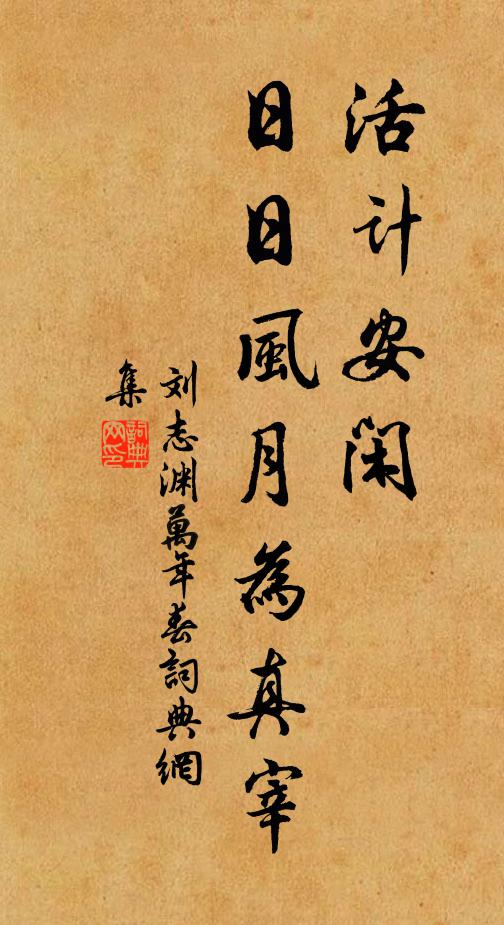 活计安闲
日日風月為真宰
刘志渊萬年春詞典網
集
詞典
网印